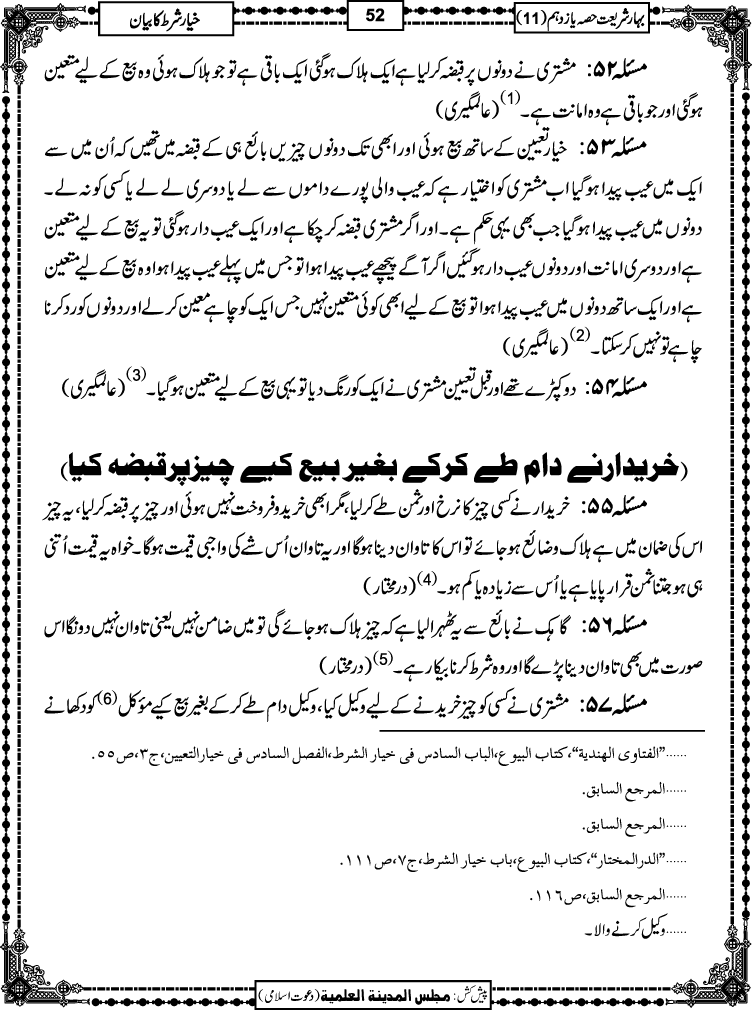 بہار شریعت حصہ یازدہم (11)
52
خیار شرط کا بیان
مسئلہ ۵۲: مشتری نے دونوں پر قبضہ کرلیا ہے ایک ہلاک ہوگئی ایک باقی ہے تو جو ہلاک ہوئی وہ بیع کے لیے متعین
ہوگئی اور جو باقی ہے وہ امانت ہے۔(1) (عالمگیری)
مسئلہ ۵۳: خیار تعیین کے ساتھ بیع ہوئی اور ابھی تک دونوں چیزیں بائع ہی کے قبضہ میں تھیں کہ اُن میں سے
ایک میں عیب پیدا ہوگیا اب مشتری کو اختیار ہے کہ عیب والی پورے داموں سے لے یا دوسری لے لے یا کسی کو نہ لے۔
دونوں میں عیب پیدا ہوگیا جب بھی یہی حکم ہے۔ اور اگر مشتری قبضہ کرچکا ہے اور ایک عیب دار ہوگئی تو یہ بیع کے لیے متعین
ہے اور دوسری امانت اور دونوں عیب دار ہوگئیں اگر آگے پیچھے عیب پیدا ہوا تو جس میں پہلے عیب پیدا ہوا وہ بیع کے لیے متعین
ہے اور ایک ساتھ دونوں میں عیب پیدا ہوا تو بیع کے لیے ابھی کوئی متعین نہیں جس ایک کو چاہے معین کرلے اور دونوں کو رد کرنا
چاہے تو نہیں کرسکتا۔(2) (عالمگیری)
مسئلہ ۵۴: دو کپڑے تھے اور قبل تعیین مشتری نے ایک کو رنگ دیا تو یہی بیع کے لیے متعین ہوگیا۔(3) (عالمگیری)
(خریدار نے دام طے کرکے بغیر بیع کیے چیز پر قبضہ کیا)
مسئلہ ۵۵: خریدار نے کسی چیز کا نرخ اور ثمن طے کرلیا، مگر ابھی خرید و فروخت نہیں ہوئی اور چیز پر قبضہ کرلیا، یہ چیز
اس کی ضمان میں ہے ہلاک و ضائع ہوجائے تو اس کا تاوان دینا ہوگا اور یہ تاوان اُس شے کی واجبی قیمت ہوگا۔ خواہ یہ قیمت اُتنی
ہی ہو جتنا ثمن قرار پایا ہے یا اُس سے زیادہ یا کم ہو۔(4) (درمختار)
مسئلہ ۵۶: گاہک نے بائع سے یہ ٹھہرالیا ہے کہ چیز ہلاک ہوجائے گی تو میں ضامن نہیں یعنی تاوان نہیں دونگا اس
صورت میں بھی تاوان دینا پڑے گا اور وہ شرط کرنا بیکار ہے۔(5) (درمختار)
مسئلہ ۵۷: مشتری نے کسی کو چیز خریدنے کے لیے وکیل کیا، وکیل دام طے کرکے بغیر بیع کیے مؤکل(6) کو دکھانے
......”الفتاوی الھندیة“، کتاب البیوع، الباب السادس فی خیار الشرط، الفصل السادس فی خیار التعیین، ج۳، ص۵۵.
......المرجع السابق.
......المرجع السابق.
......”الدرالمختار“، کتاب البیوع، باب خیار الشرط، ج۷، ص۱۱۱.
......المرجع السابق، ص۱۱۶.
......وکیل کرنے والا۔
پیش کش: مجلس المدینة العلمیة (دعوت اسلامی)